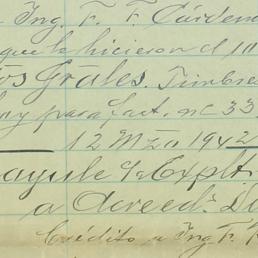 Ing. F. F. Cárden
que le hicieron el 1
os Grales. Timbre
y para fact. nc 33
12 Mzo 1942
ayule y Explt
a Acreeds. D
Crédito a Ing F. F